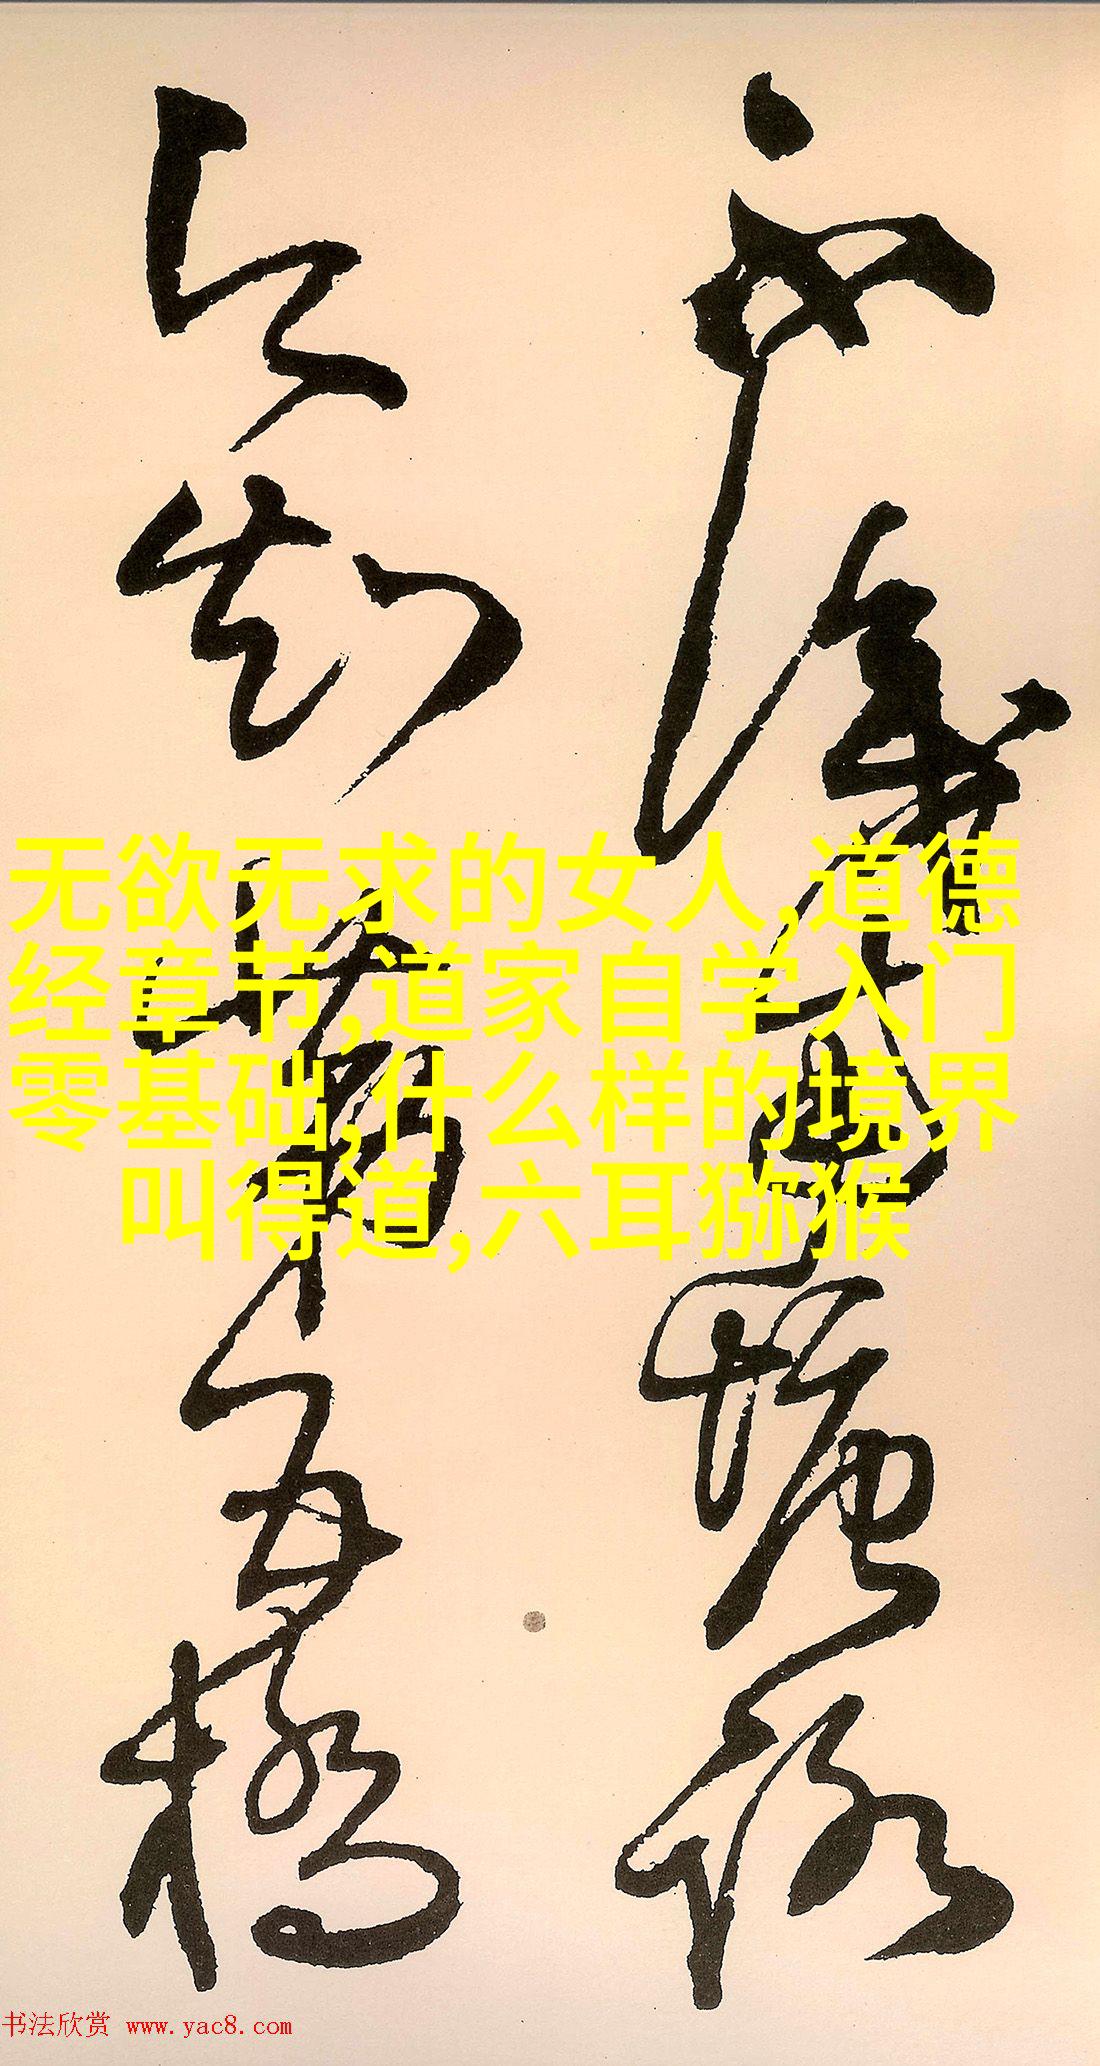 不識南塘路
今知第五橋
无欲无求的女人,道德
经章节,道家自学入门
零基础,什么样的境界
叫得道,六耳猕猴
书法欣赏 www.yac8.com